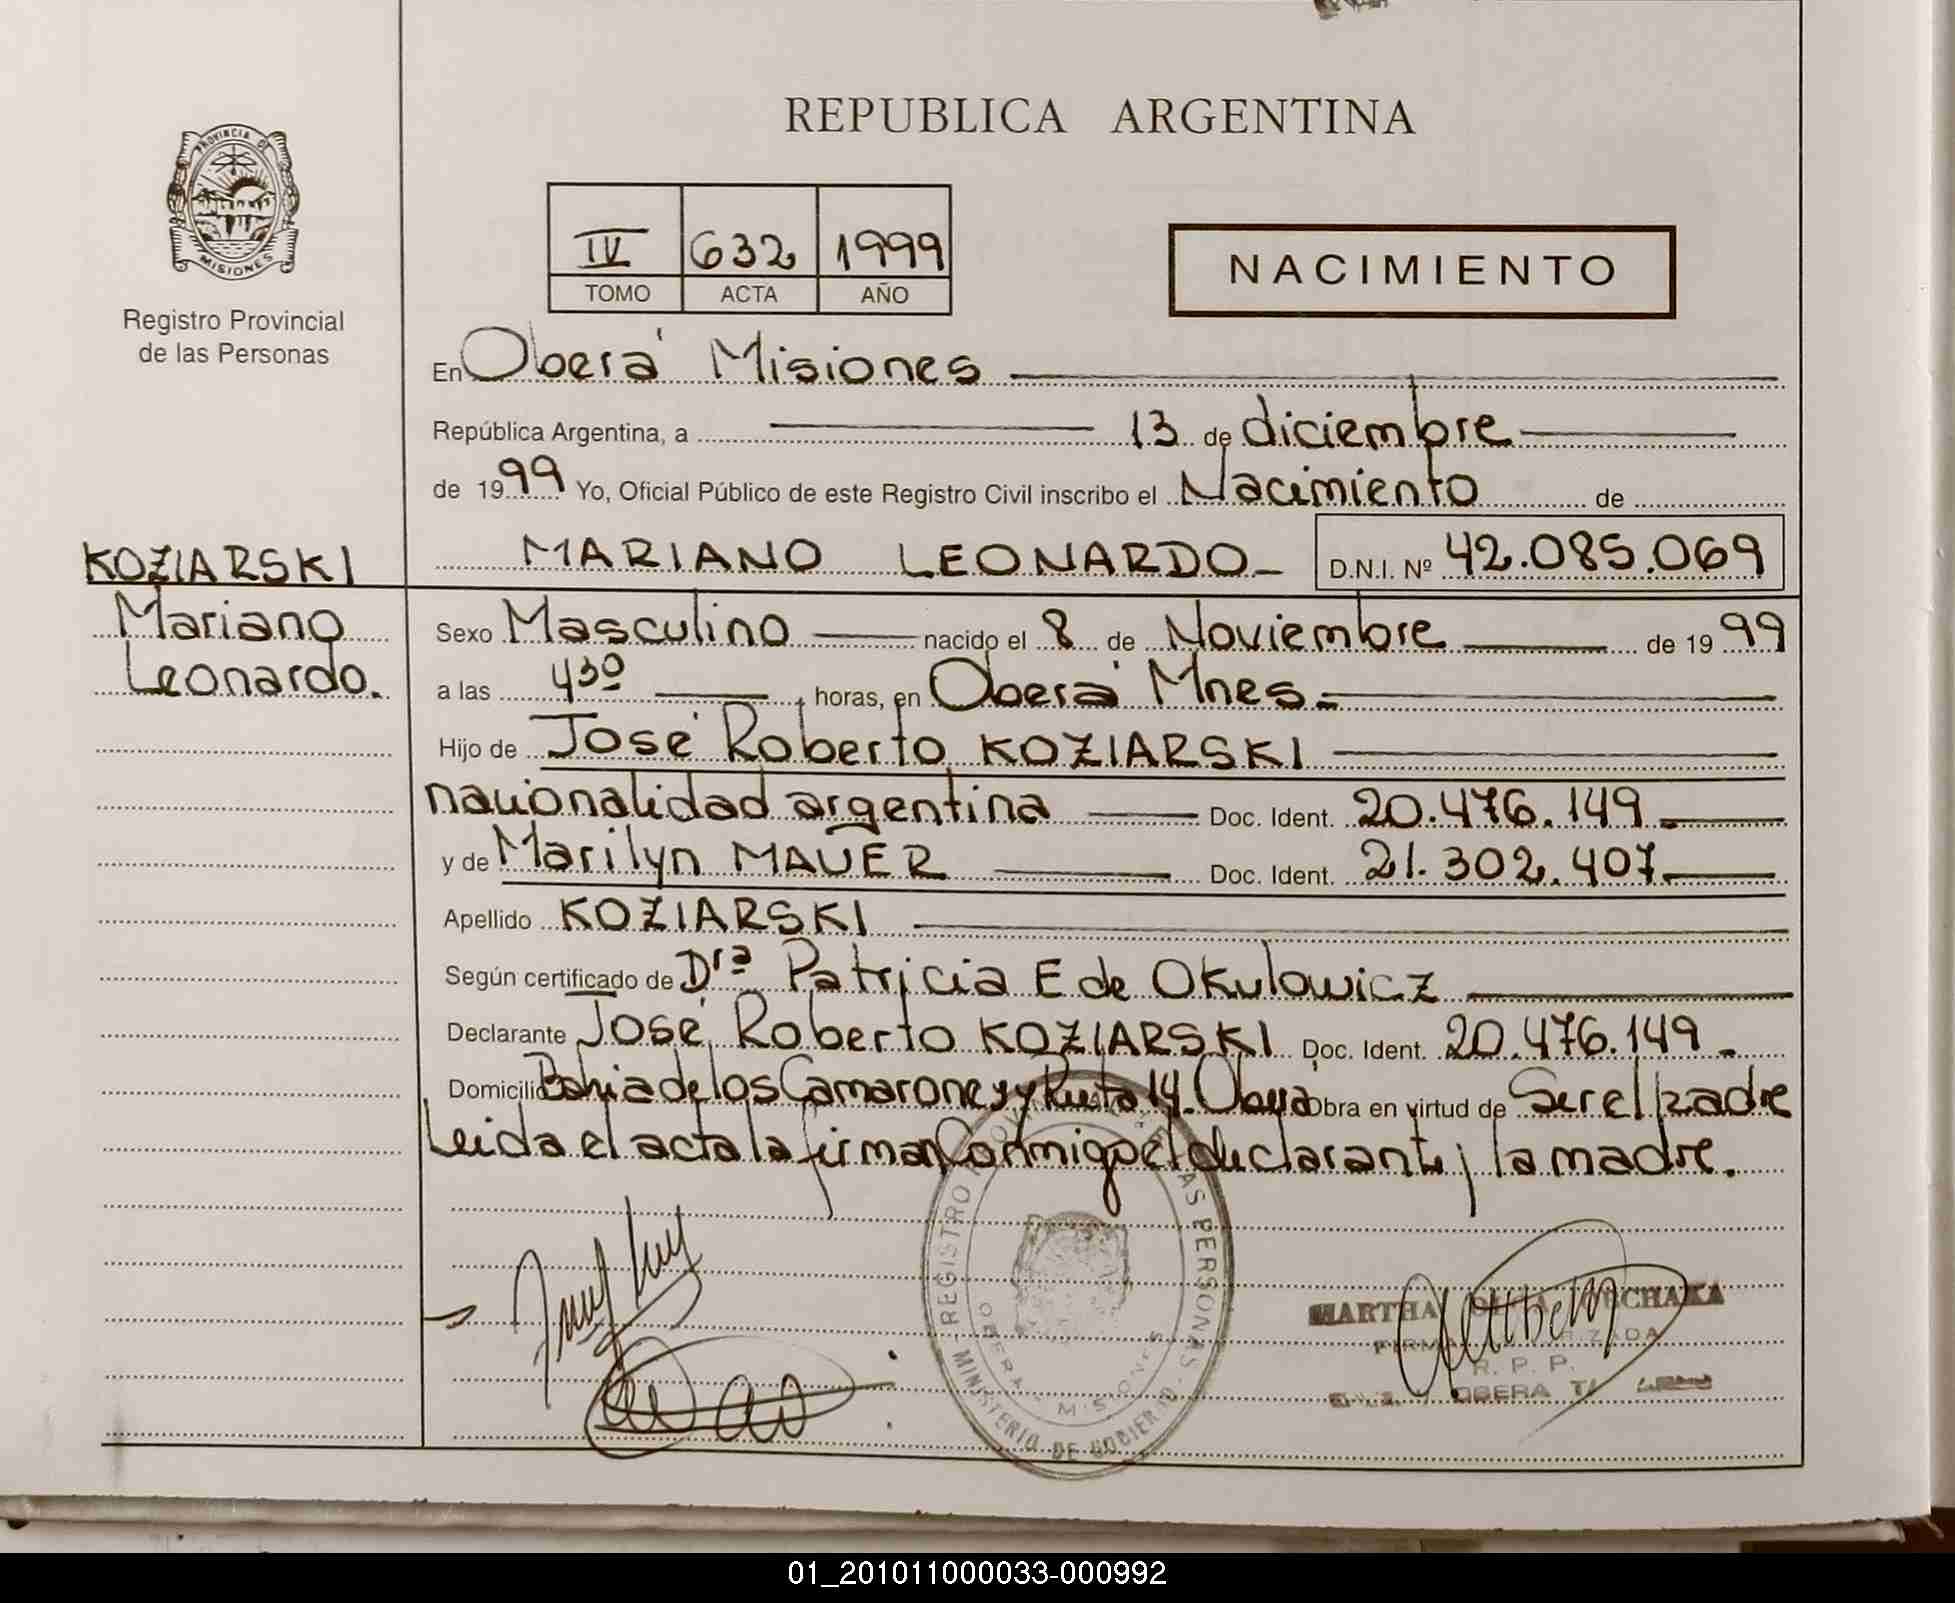 REPUBLICA ARGENTINA
PROVINCIA DE
MISIONES
Registro Provincial
de las Personas
IV 632 1999
TOMO ACTA AÑO
NACIMIENTO
En Oberá Misiones
República Argentina, a 13 de diciembre
de 1999 Yo, Oficial Público de este Registro Civil inscribo el Nacimiento de
KOZIARSKI
Mariano
Leonardo.
MARIANO LEONARDO D.N.I. Nº 42.085.069
Sexo Masculino nacido el 8 de Noviembre de 1999
a las 4³⁰ horas, en Oberá Mnes.
Hijo de José Roberto KOZIARSKI
nacionalidad argentina Doc. Ident. 20.476.149
y de Marilyn MAUER Doc. Ident. 21.302.407
Apellido KOZIARSKI
Según certificado de Drª Patricia E de Okulowicz
Declarante José Roberto KOZIARSKI Doc. Ident. 20.476.149
Domicilio Bahia de los Camarones y Ruta 14. Oberá Obra en virtud de Ser el padre
Leida el acta la firman Conmigo el declarante y la madre.
REGISTRO PERSONAS
MINISTERIO DE GOBIERNO
OBERA MISIONES
MARTHA
R. P. P.
OBERA
01_201011000033-000992